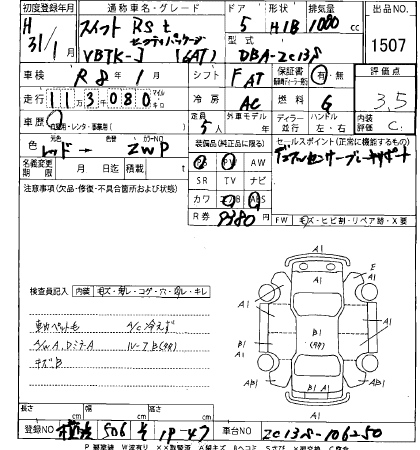 初度登録年月 通称車名・グレード ドア 形状 排気量 出品NO.
H 31/1 スイフト RSt 5 H/B 1000 cc 1507
セーフティパッケージ
VBTK-J (6AT) 型式 DBA-ZC13S
車検 R 8年 1月 シフト FAT 保証書 有・無 評価点 3.5
走行 113080 冷房 AC 燃料 G
車歴 自家用・レンタ・事業用( ) 定員 5人 外車モデル年 ディーラー・並行 ハンドル 左・右 内装評価 C
色 レッド→ 色替 カラーNO ZWP 装備品(純正品に限る) セールスポイント(正常に機能するもの)
名義変更期限 月 日迄 積載 t PS PW AW デュアルセンサーブレーキサポート
注意事項(欠品・修復・不具合箇所および状態) SR TV ナビ
カワ エアB ABS
R券 9380円 FW キズ・ヒビ割・リペア跡・X要
A1
A1 E
検査員記入 内装 キズ・汚レ・コゲ・穴・ハガレ・キレ
A1 A1
車内ペット毛 A/C冷えず B1 B1 A1
A/W A、Dミラー A ルーフB(48) (48)
キズ B A1
AB1 B1 AB1
A1
長さ cm 幅 cm 高さ cm
登録NO 506 そ 19-47 車台NO ZC13S-106250